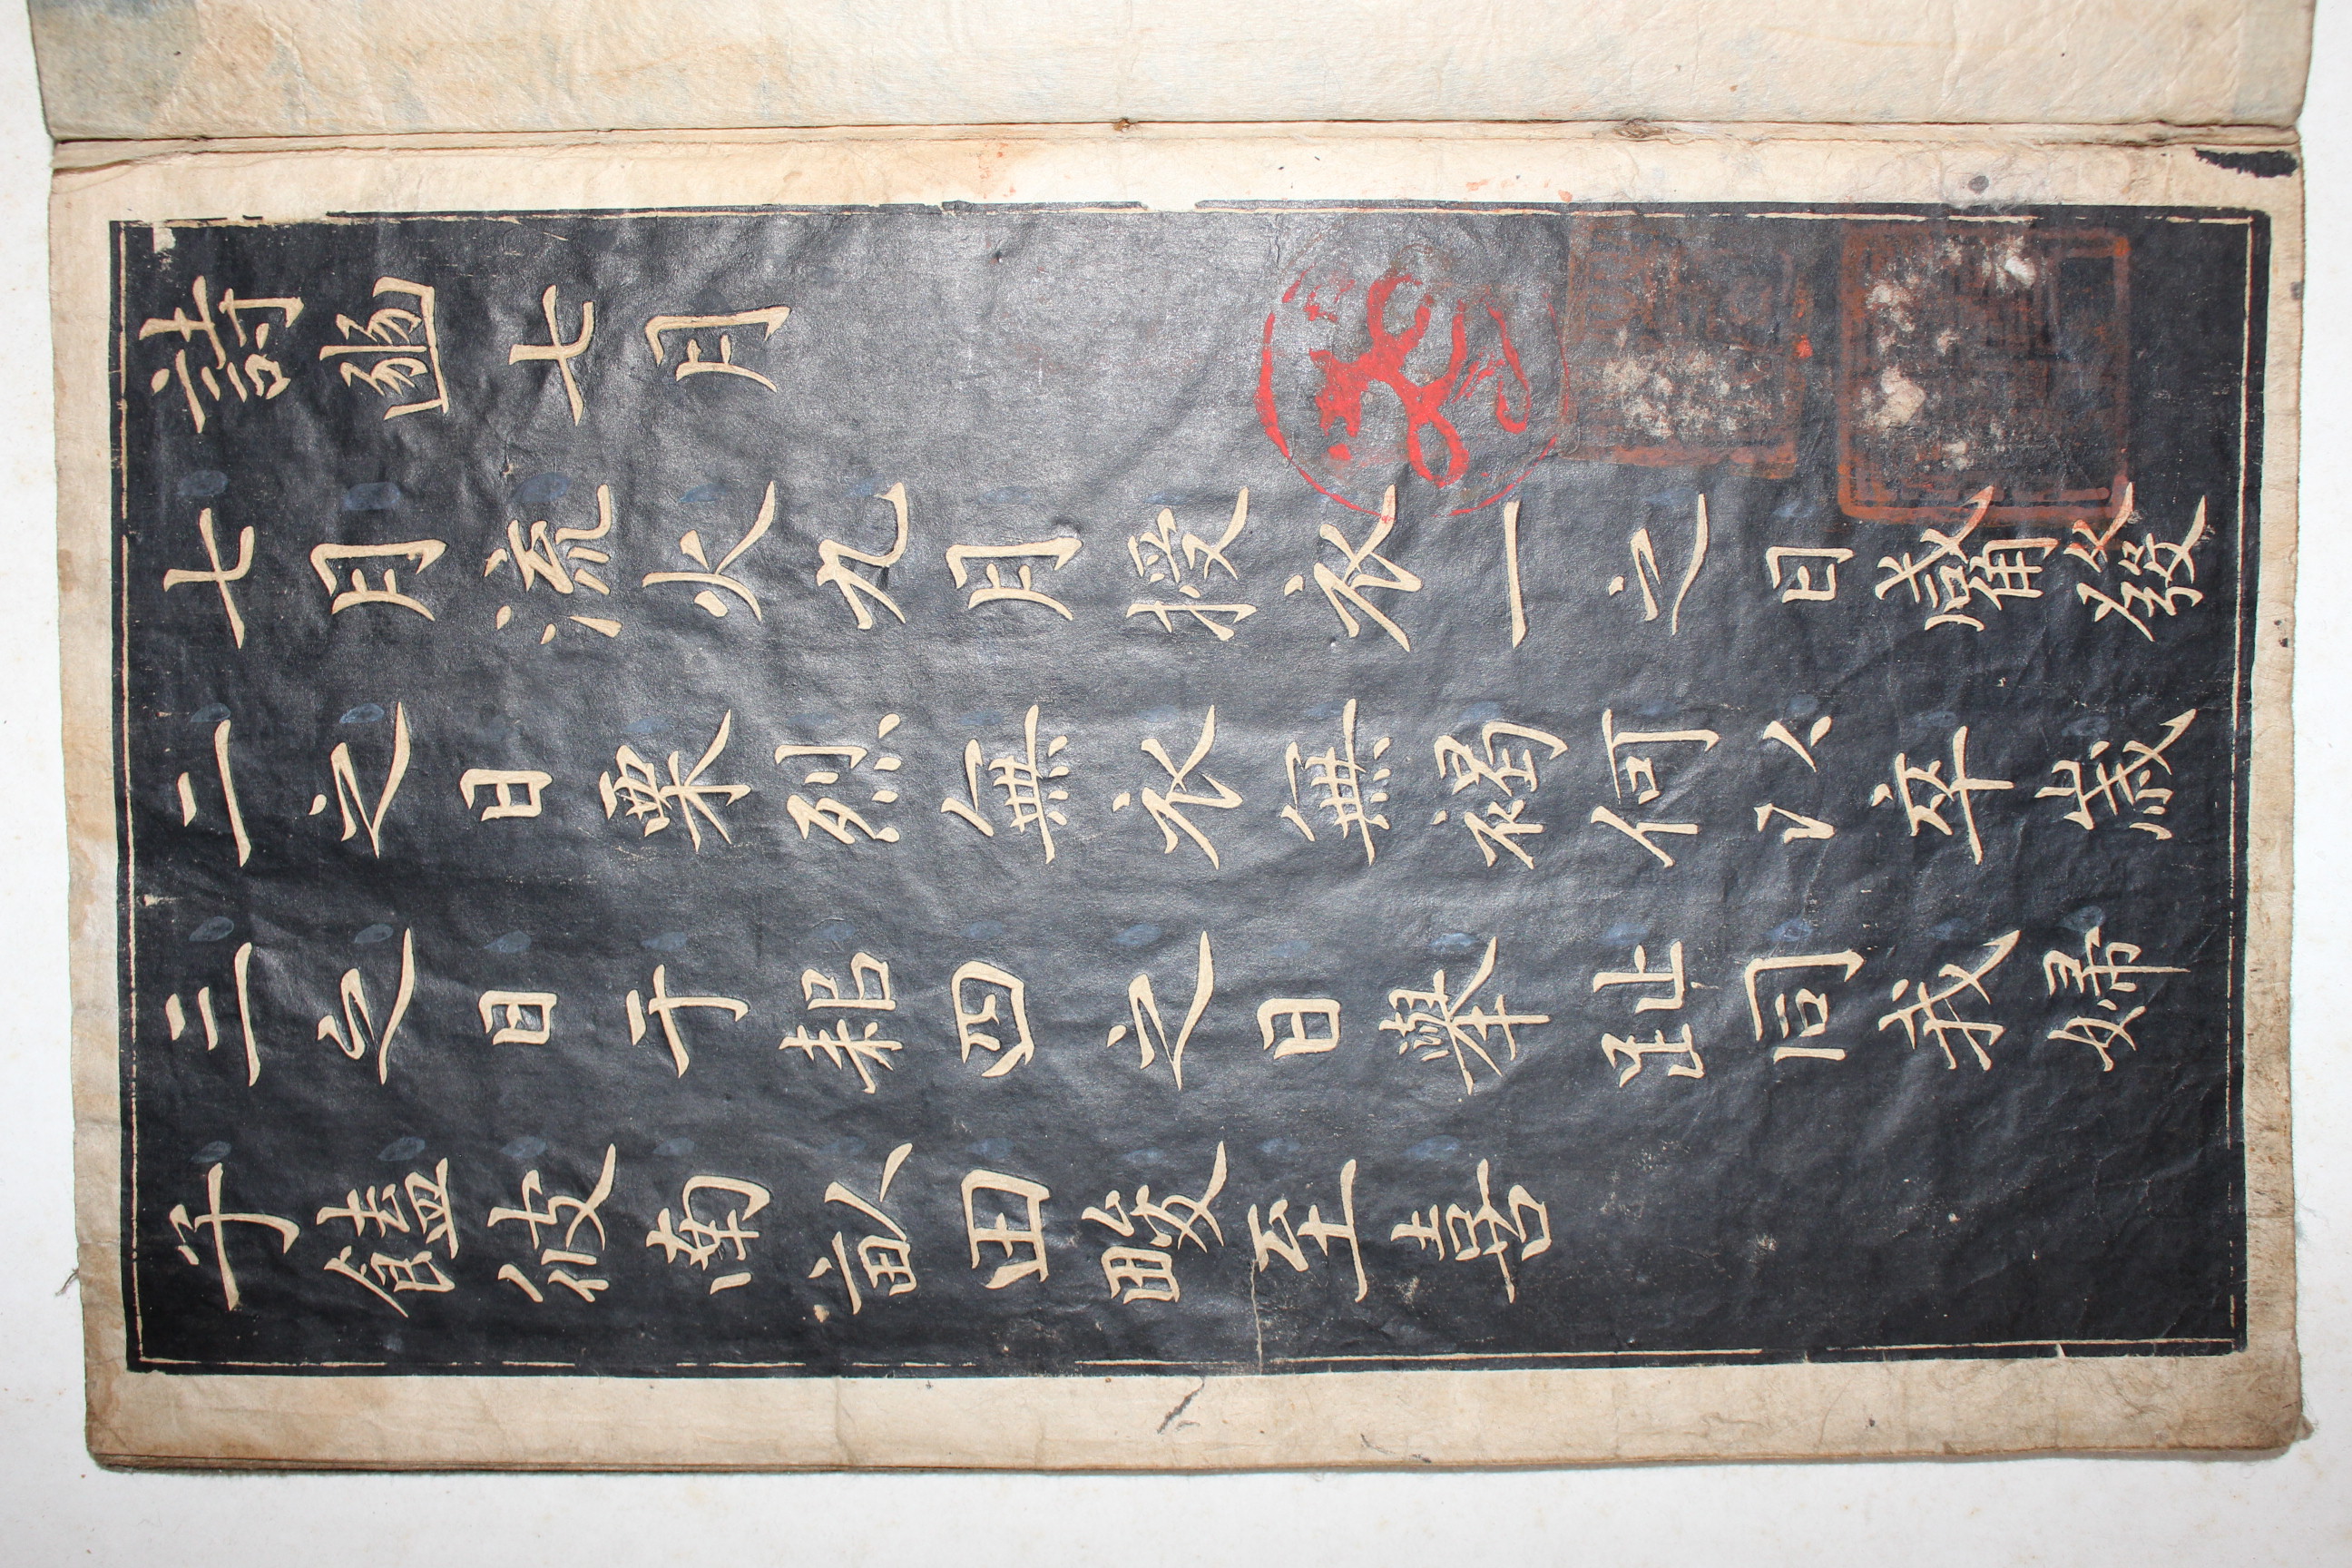 詩豳七月
七月流火九月授衣一之日觱發
二之日栗烈無衣無褐何以卒歲
三之日于耜四之日舉趾同我婦
子饁彼南畝田畯至喜